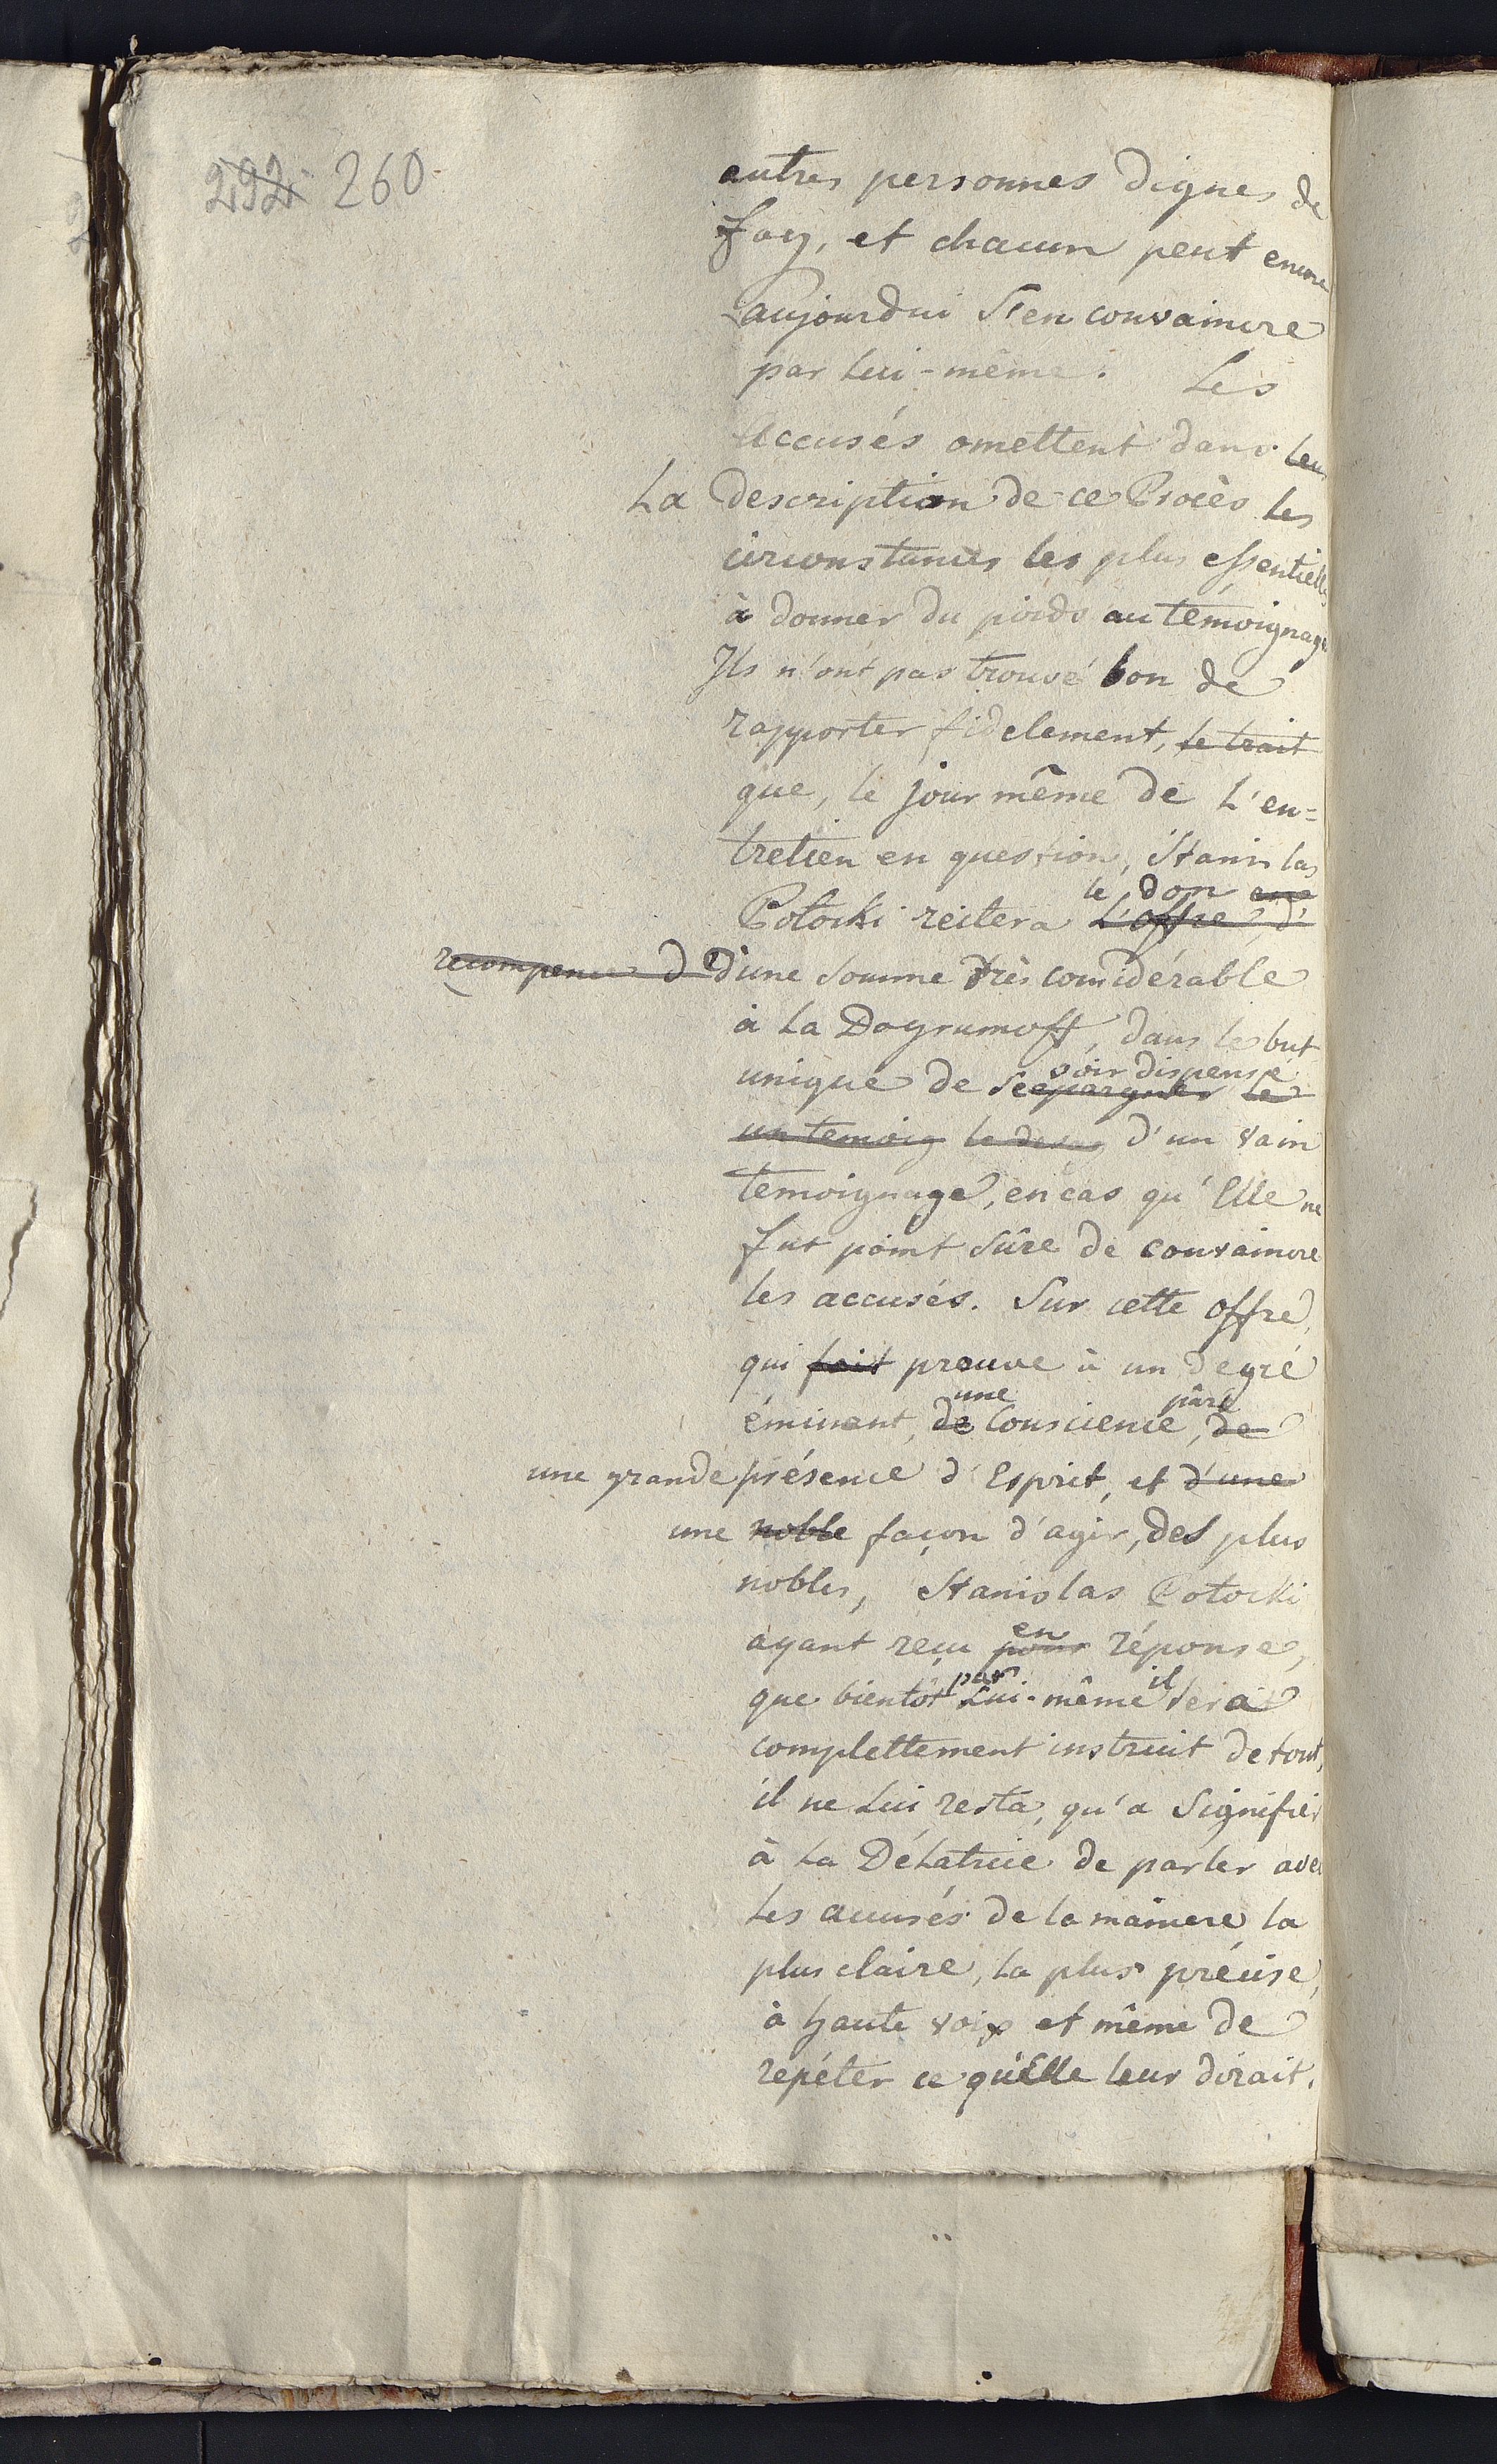 292 260
autres personnes dignes de
foy, et chacun peut encore
aujourdui s'en convaincre
par Lui-même. Les
Accusés omettent dans leur
La description de ce Procès les
circonstances les plus essentielles
à donner du poids au témoignage
Ils n'ont pas trouvé bon de
rapporter fidelement, le trait
que, le jour même de L'en=
tretien en question, Stanislas
le don en
Potocki reitera L'offre d'
recompense de d'une somme très considérable
à La Dogrumoff, dans le but
soir dispensé
unique de s'epargner le
un temoig d'un vain
temoignage, en cas qu'Elle ne
fut point sûre de convaincre
les accusés. Sur cette offre,
qui fait prouve à un degré
une pûre
éminent, de Conscience, de
une grande présence d'Esprit, et d'une
une noble façon d'agir, des plus
nobles, Stanislas Potocki
en
ayant reçu pour réponse,
par il
que bientôt Lui-même sera
complettement instruit de tout,
il ne Lui resta, qu'a Signifier
à La Délatrice de parler avec
Les accusés de la maniere la
plus claire, la plus précise,
à haute voix et même de
repéter ce qu'Elle leur dirait.